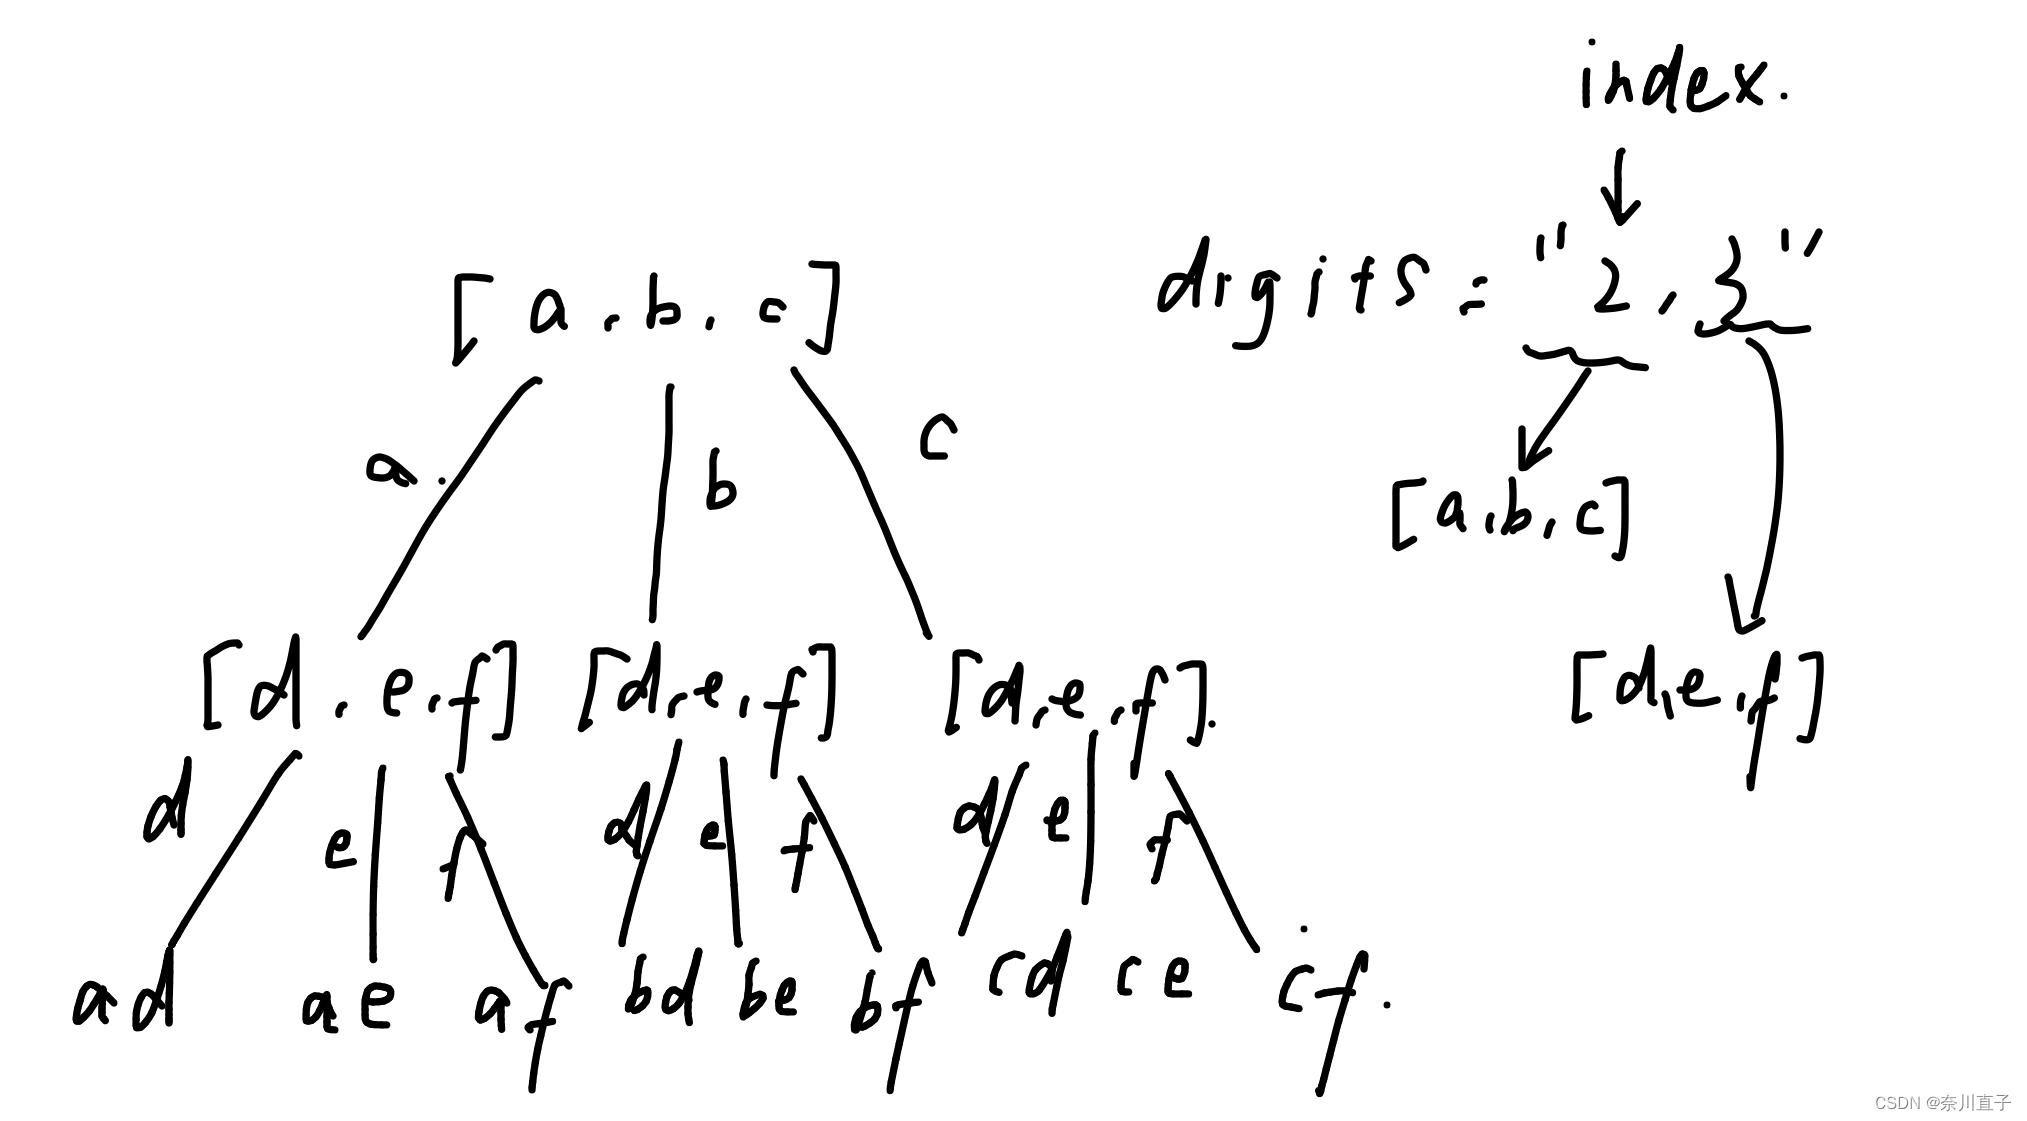 index.
digits = "2,3"
[a,b,c]
a. b c
[a,b,c]
[d,e,f] [d,e,f] [d,e,f].
[d,e,f]
d e f d e f d e f
ad ae af bd be bf cd ce cf.
CSDN @奈川直子